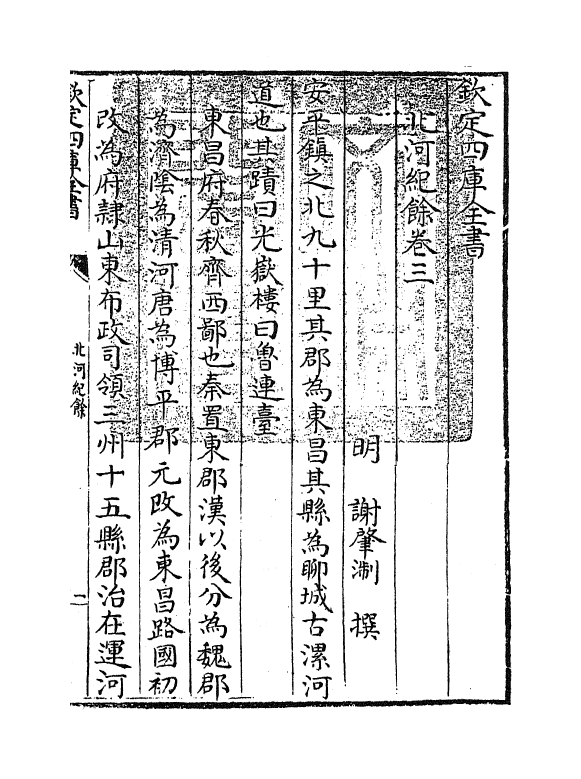 欽定四庫全書
北河紀餘卷三
明 謝肇淛 撰
安平鎮之北九十里其郡為東昌其縣為聊城古漯河
道也其蹟曰光嶽樓曰魯連臺
東昌府春秋齊西鄙也秦置東郡漢以後分為魏郡
為濟隂為清河唐為博平郡元改為東昌路國初
改為府隷山東布政司領三州十五縣郡治在運河
欽定四庫全書
北河紀餘